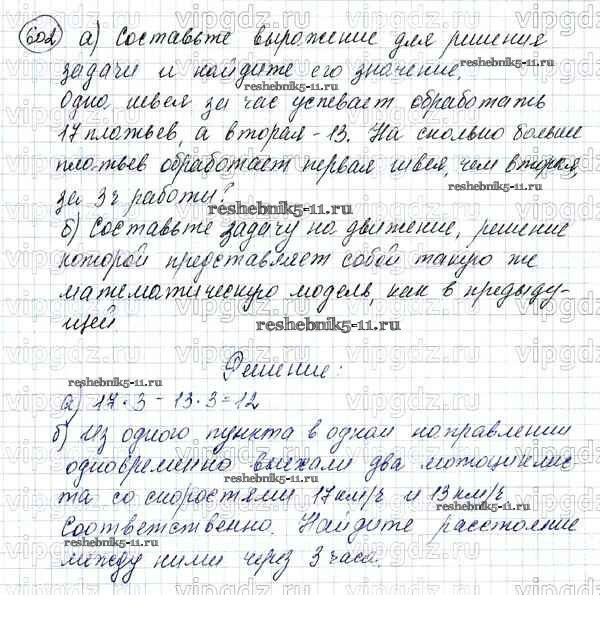 602 а) Составьте выражение для решения
задачи и найдите его значение.
Одна швея за час успевает обработать
17 платьев, а вторая - 13. На сколько больше
платьев обработает первая швея, чем вторая,
за 3 ч работы?
б) Составьте задачу на движение, решение
которой представляет собой такую же
математическую модель, как в предыду-
щей
Решение:
а) 17·3 - 13·3 = 12
б) Из одного пункта в одном направлении
одновременно выехали два мотоциклис-
та со скоростями 17 км/ч и 13 км/ч
Соответственно. Найдите расстояние
между ними через 3 часа.
vipgdz.ru
reshebnik5-11.ru